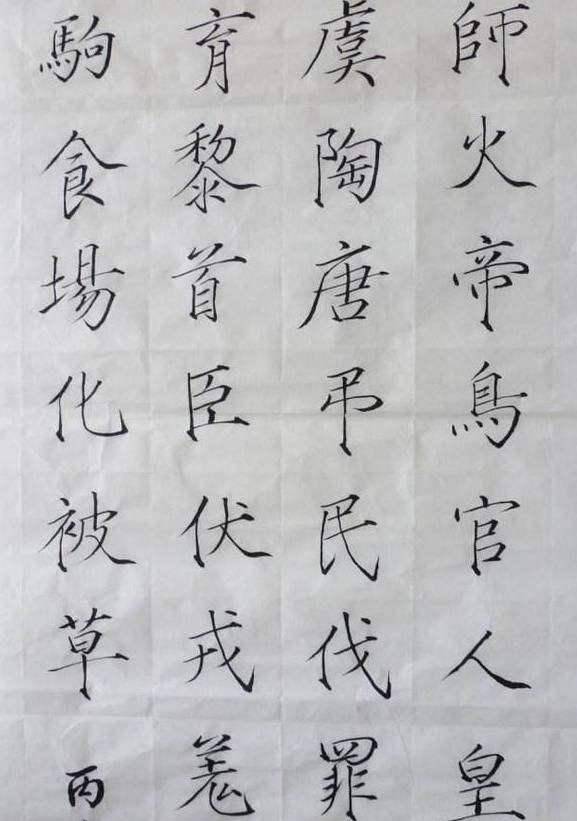 師火帝鳥官人皇
虞陶唐弔民伐罪
育黎首臣伏戎羌
駒食場化被草
丙